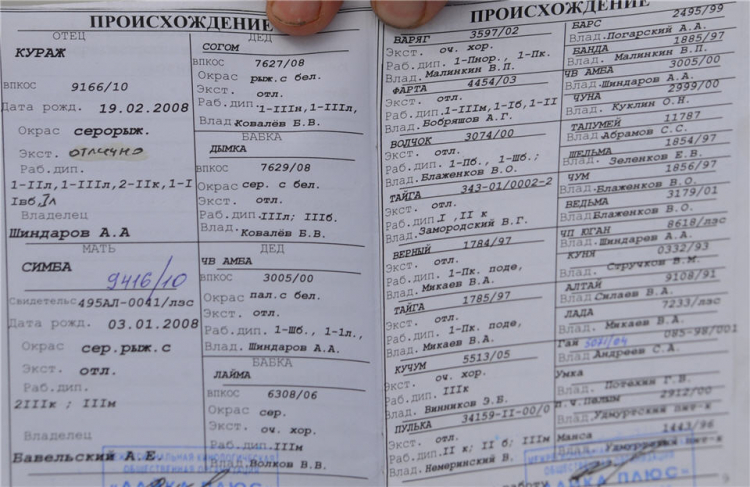 ПРОИСХОЖДЕНИЕ
ОТЕЦ
КУРАЖ
ВПКОС 9166/10
Дата рожд. 19.02.2008
Окрас серорыж.
Экст. отлично
Раб.дип.
1-IIл,1-IIIл,2-IIк,1-I
Iвб,Iл
Владелец
Шиндаров А.А
МАТЬ
СИМБА 9416/10
Свидетельс 495АЛ-0041/лэс
Дата рожд. 03.01.2008
Окрас сер.рыж.с
Экст. отл.
Раб.дип.
2IIIк ; IIIм
Владелец
Бавельский А.Е.
ДЕД
СОГОМ
ВПКОС 7627/08
Окрас рыж.с бел.
Экст. отл.
Раб.дип.1-IIIн,1-IIIл,
Влад.Ковалёв Б.В.
БАБКА
ДЫМКА
ВПКОС 7629/08
Окрас сер. с бел.
Экст. отл.
Раб.дип.IIIл; IIIб.
Влад.Ковалёв Б.В.
ДЕД
ЧВ АМБА
ВПКОС 3005/00
Окрас пал.с бел.
Экст. отл.
Раб.дип. 1-Шб., 1-1л.,
Влад. Шиндаров А.А.
БАБКА
ЛАЙМА
ВПКОС 6308/06
Окрас сер.
Экст. оч. хор.
Раб.дип.IIIм
Влад.Волков В.В.
ПРОИСХОЖДЕНИЕ
ВАРЯГ 3597/02
Экст. оч. хор.
Раб.дип. 1-Пнор., 1-Пк.
Влад. Малинкин В.П.
ФАРТА 4454/03
Экст. отл.
Раб.дип.1-IIIм,1-Iб,1-II
Влад. Бобряшов А.Г.
ВОЛЧОК 3074/00
Экст. отл.
Раб.дип. 1-Пб., 1-Шб.;
Влад. Блаженков В.О.
ТАЙГА 343-01/0002-2
Экст. отл.
Раб.дип.I ,II к
Влад. Замородский В.Г.
ВЕРНЫЙ 1784/97
Экст. отл.
Раб.дип. 1-Пк. поде,
Влад. Микаев В.А.
ТАЙГА 1785/97
Экст. отл.
Раб.дип. 1-Пк. поде,
Влад. Микаев В.А.
КУЧУМ 5513/05
Экст. оч. хор.
Раб.дип. IIIк
Влад. Винников Э.Б.
ПУЛЬКА 34159-II-00/0
Экст. отл.
Раб.дип.II к; II б; IIIм
Влад. Немеринский В.
БАРС 2495/99
Влад.Погарский А.А.
БАНДА 1885/97
Влад. Малинкин В.П.
ЧВ АМБА 3005/00
Влад. Шиндаров А.А.
ЧУНА 2999/00
Влад. Куклин О.Н.
ТАПУМЕЙ 11787
Влад. Абрамов С.С.
ШЕЛЬМА 1854/97
Влад. Зеленков Е.В.
ЧУМ 1856/97
Влад. Блаженков В.О.
ВЕДЬМА 3179/01
Влад. Блаженков В.О.
ЧП ЮГАН 8618/лэс
Влад. Шиндарев А.А.
КУНЯ 0332/93
Влад. Стручков В.М.
АЛТАЙ 9108/91
Влад. Силаев В.А.
ЛАДА 7233/лэс
Влад. Микаев В.А.
Ган 5071/04 085-98/001
Влад. Андреев С.А.
Умка
Влад. Потехин Г.В.
п.ч.Пелым 2912/00
Влад. Удмуртский пит-к
Манса 1443/96
Влад. Удмуртский пит-к